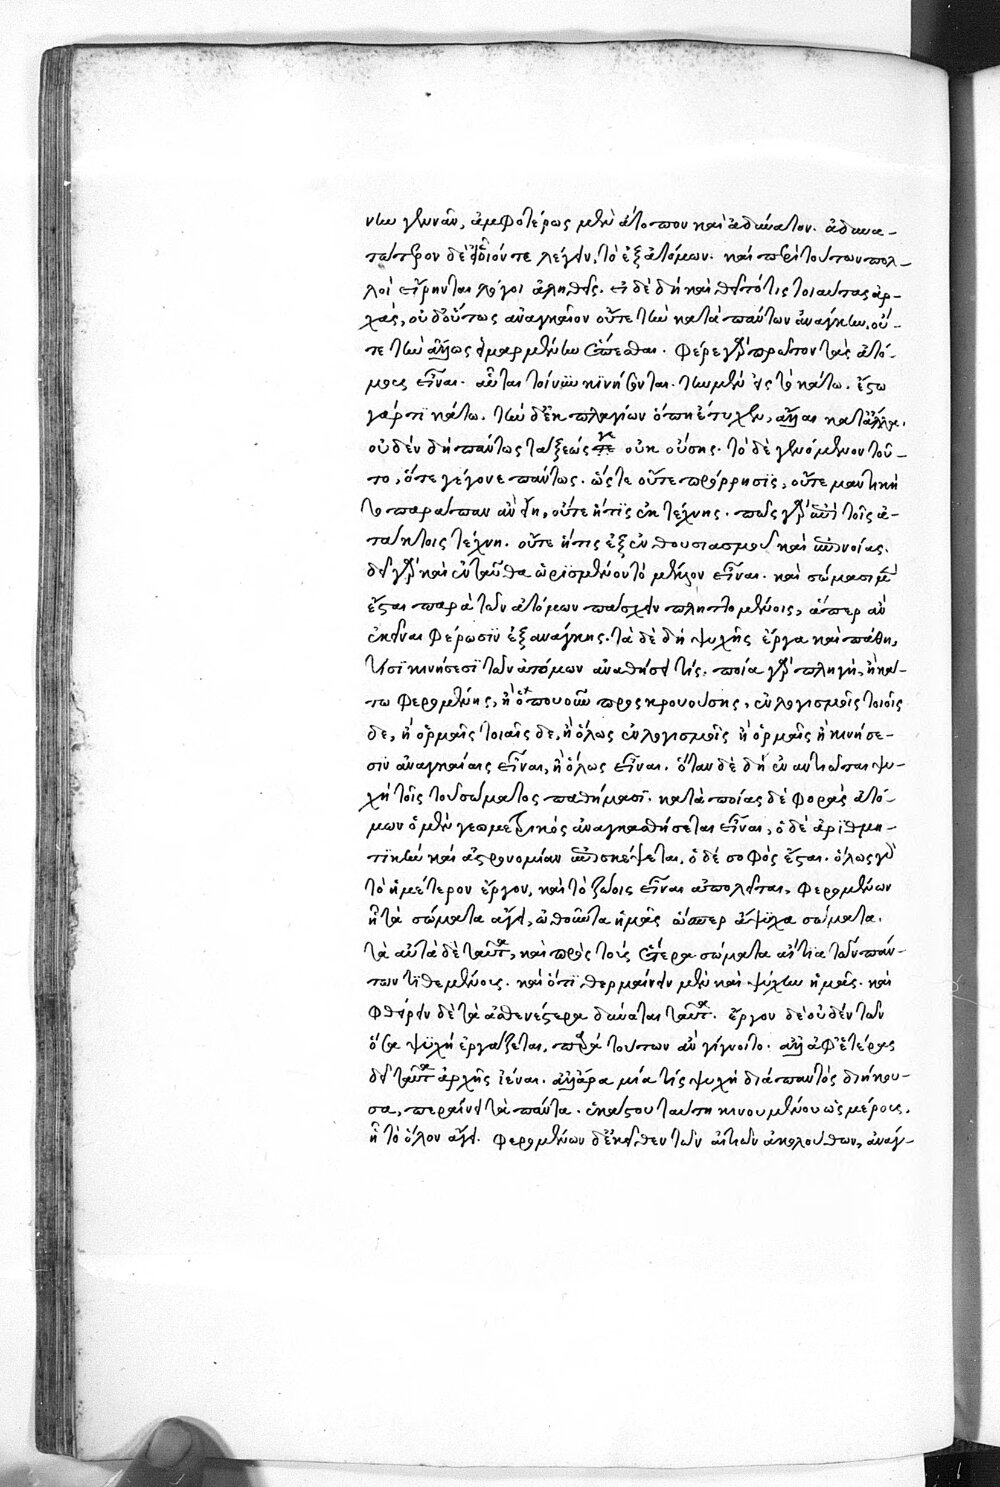 νην γεννᾶν, ἀμφοτέρως μὲν ἄτοπον καὶ ἀδύνατον. ἀδυνα-
τώτερον δὲ οἷόν τε λέγειν, τὸ ἐξ ἀτόμων. καὶ περὶ τούτων πολ-
λοὶ εἴρηνται λόγοι ἀληθεῖς. εἰ δὲ δὴ καὶ θεῖτό τις τοιαύτας ἀρ-
χάς, οὐδ' οὕτως ἀναγκαῖον οὔτε τὴν κατὰ πάντων ἀνάγκην, οὔ-
τε τὴν ἄλλως εἱμαρμένην ἕπεσθαι. φέρε γὰρ πρῶτον τὰς ἀτό-
μους εἶναι. αὗται τοίνυν κινήσονται. τὴν μὲν εἰς τὸ κάτω. ἔστω
γάρ τι κάτω. τὴν δ' ἐκ πλαγίων ὅπη ἔτυχεν, ἄλλαι κατ' ἄλλα.
οὐδὲν δὴ πάντως τάξεώς γε οὐκ οὔσης. τὸ δὲ γενόμενον τοῦ-
το, ὅτε γέγονε πάντως. ὥστε οὔτε πρόρρησις, οὔτε μαντικὴ
τὸ παράπαν ἂν εἴη, οὔτε ἥτις ἐκ τέχνης. πῶς γὰρ ἐπὶ τοῖς ἀ-
τάκτοις τέχνη. οὔτε ἥτις ἐξ ἐνθουσιασμοῦ καὶ ἐπιπνοίας.
δεῖ γὰρ καὶ ἐνταῦθα ὡρισμένον τὸ μέλλον εἶναι. καὶ σώμασι μὲν
ἔσται παρὰ τῶν ἀτόμων πάσχειν πληττομένοις, ἅπερ ἂν
ἐκεῖναι φέρωσιν ἐξ ἀνάγκης. τὰ δὲ δὴ ψυχῆς ἔργα καὶ πάθη,
τίσι κινήσεσι τῶν ἀτόμων ἀναθήσει τίς. ποία γὰρ πληγῇ, ἢ κά-
τω φερομένης, ἢ ὁπουοῦν προσκρουούσης, ἐν λογισμοῖς τοιοῖς
δε, ἢ ὁρμαῖς τοιαῖς δε, ἢ ὅλως ἐν λογισμοῖς ἢ ὁρμαῖς ἢ κινήσε-
σιν ἀναγκαίαις εἶναι, ἢ ὅλως εἶναι. ὅταν δὲ δὴ ἐναντιῶται ψυ-
χὴ τοῖς τοῦ σώματος παθήμασι. κατὰ ποίας δὲ φορὰς ἀτό-
μων ὁ μὲν γεωμετρικὸς ἀναγκασθήσεται εἶναι, ὁ δὲ ἀριθμη-
τικὴν καὶ ἀστρονομίαν ἐπισκέψεται, ὁ δὲ σοφὸς ἔσται. ὅλως γὰρ
τὸ ἡμέτερον ἔργον, καὶ τὸ ζώοις εἶναι ἀπολεῖται, φερομένων
ᾗ τὰ σώματα ἄγει, ὠθοῦντα ἡμᾶς ὥσπερ ἄψυχα σώματα.
τὰ αὐτὰ δὲ ταῦτα, καὶ πρὸς τοὺς ἕτερα σώματα αἴτια τῶν πάν-
των τιθεμένους. καὶ ὅτι θερμαίνειν μὲν καὶ ψύχειν ἡμᾶς. καὶ
φθείρειν δὲ τὰ ἀσθενέστερα δύναται ταῦτα. ἔργον δὲ οὐδὲν τῶν
ὅσα ψυχὴ ἐργάζεται, παρὰ τούτων ἂν γίγνοιτο. ἀλλ' ἀφ' ἑτέρας
δεῖ ταῦτα ἀρχῆς ἰέναι. ἀλλ' ἄρα μία τίς ψυχὴ διὰ παντὸς διήκου-
σα, περαίνει τὰ πάντα. ἑκάστου ταύτη κινουμένου ὡς μέρους,
ᾗ τὸ ὅλον ἄγει. φερομένων δ' ἐκεῖθεν τῶν αἰτιῶν ἀκολούθων, ἀνάγ-